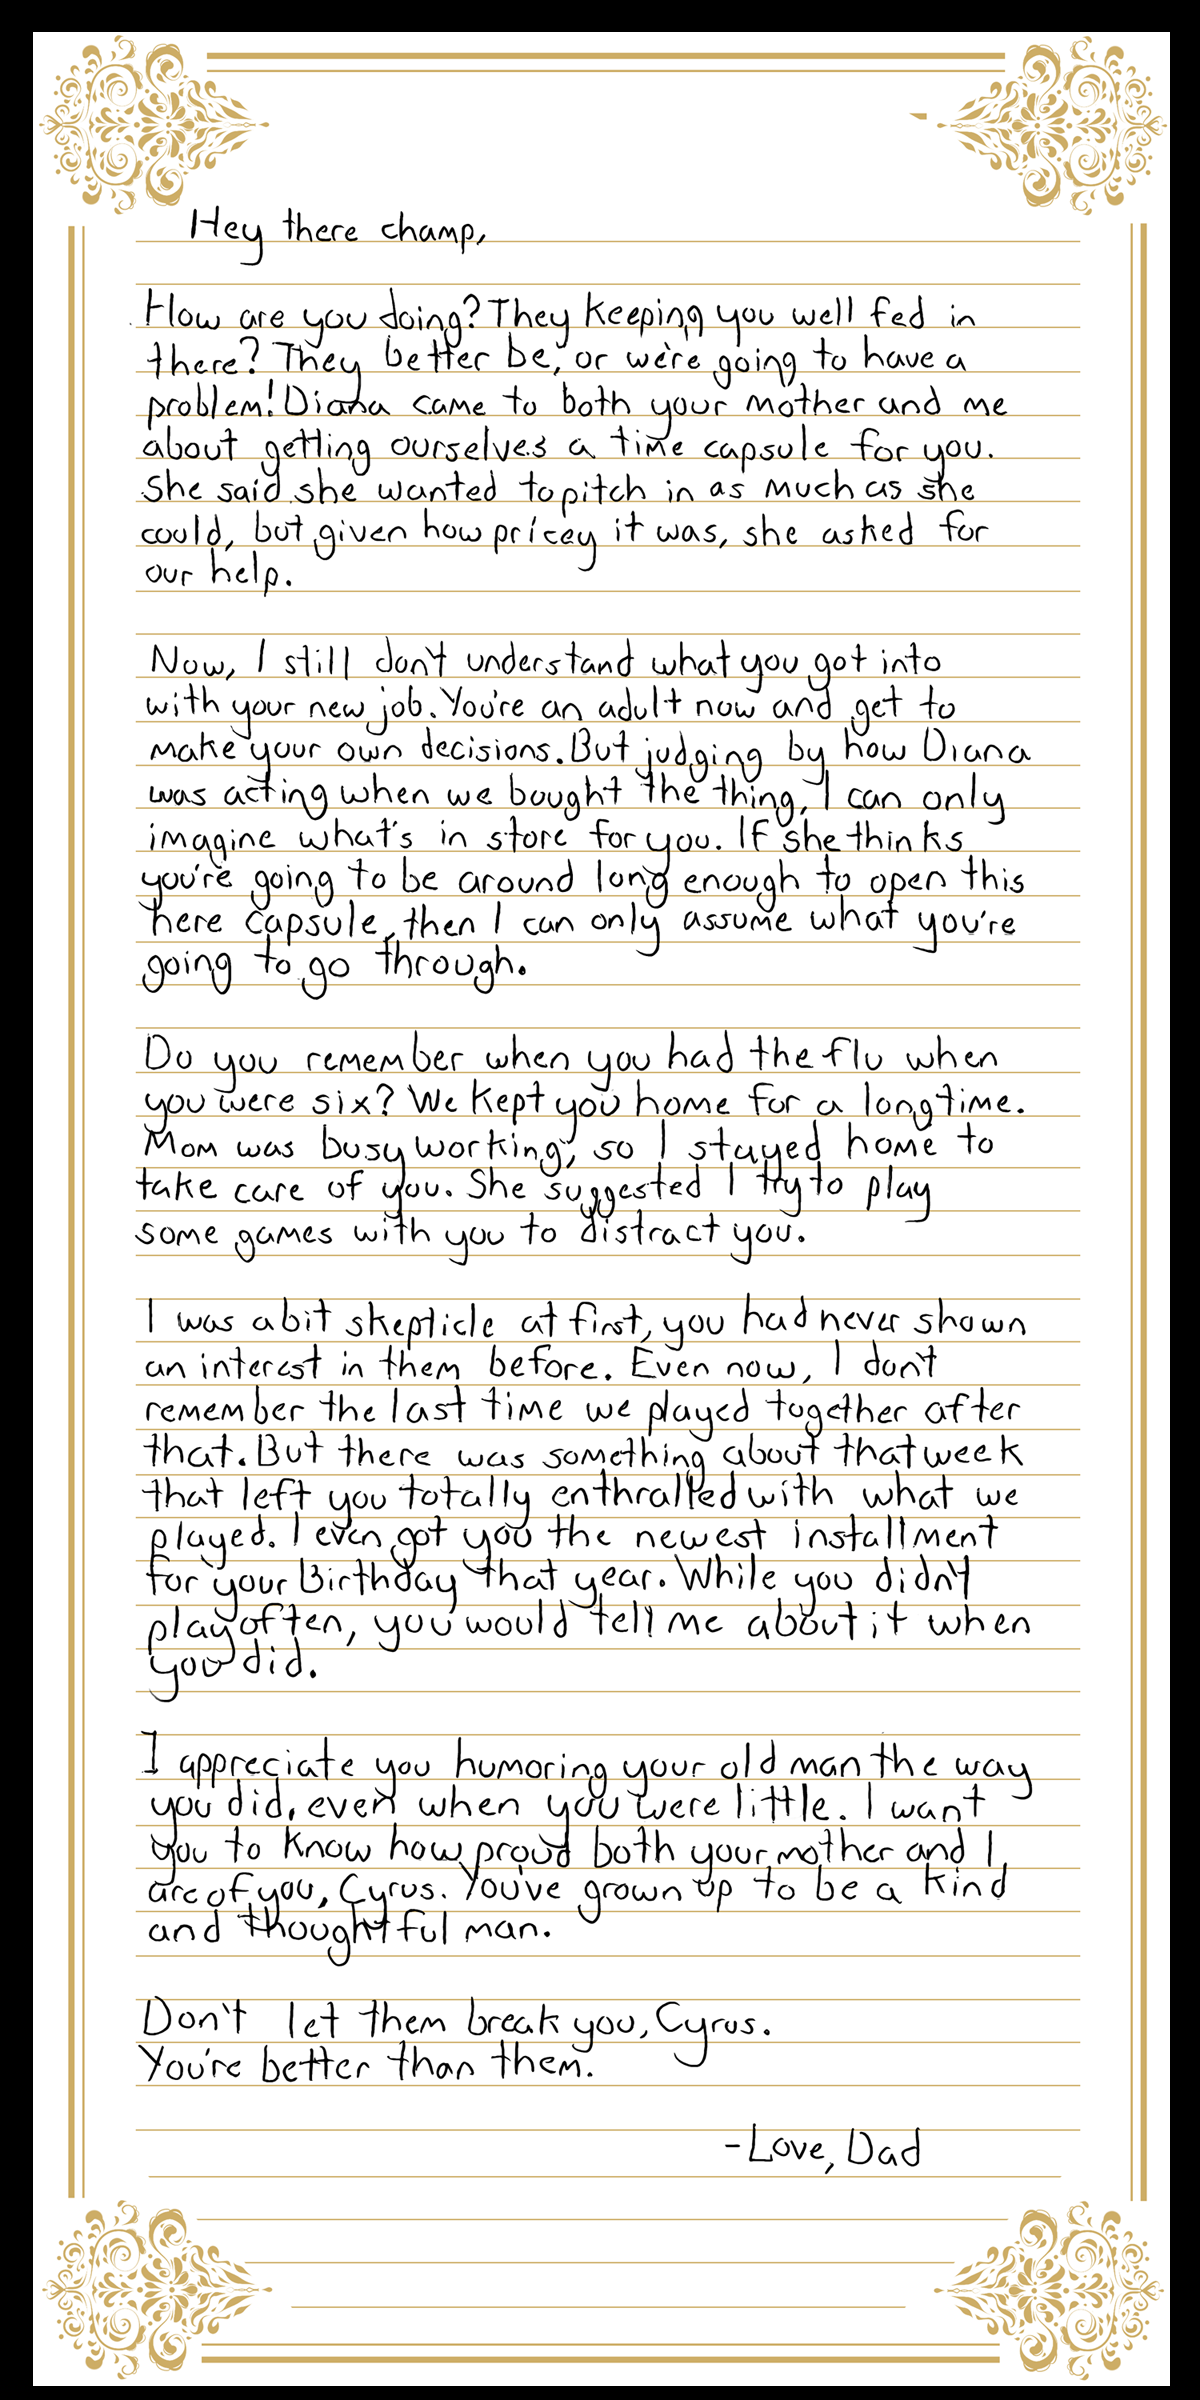 Hey there champ,
How are you doing? They keeping you well fed in
there? They better be, or we're going to have a
problem! Diana came to both your mother and me
about getting ourselves a time capsule for you.
She said she wanted to pitch in as much as she
could, but given how pricey it was, she asked for
our help.
Now, I still don't understand what you got into
with your new job. You're an adult now and get to
make your own decisions. But judging by how Diana
was acting when we bought the thing, I can only
imagine what's in store for you. If she thinks
you're going to be around long enough to open this
here capsule, then I can only assume what you're
going to go through.
Do you remember when you had the flu when
you were six? We kept you home for a long time.
Mom was busy working, so I stayed home to
take care of you. She suggested I try to play
some games with you to distract you.
I was a bit skepticle at first, you had never shown
an interest in them before. Even now, I don't
remember the last time we played together after
that. But there was something about that week
that left you totally enthralled with what we
played. I even got you the newest installment
for your Birthday that year. While you didn't
play often, you would tell me about it when
you did.
I appreciate you humoring your old man the way
you did, even when you were little. I want
you to know how proud both your mother and I
are of you, Cyrus. You've grown up to be a kind
and thoughtful man.
Don't let them break you, Cyrus.
You're better than them.
-Love, Dad